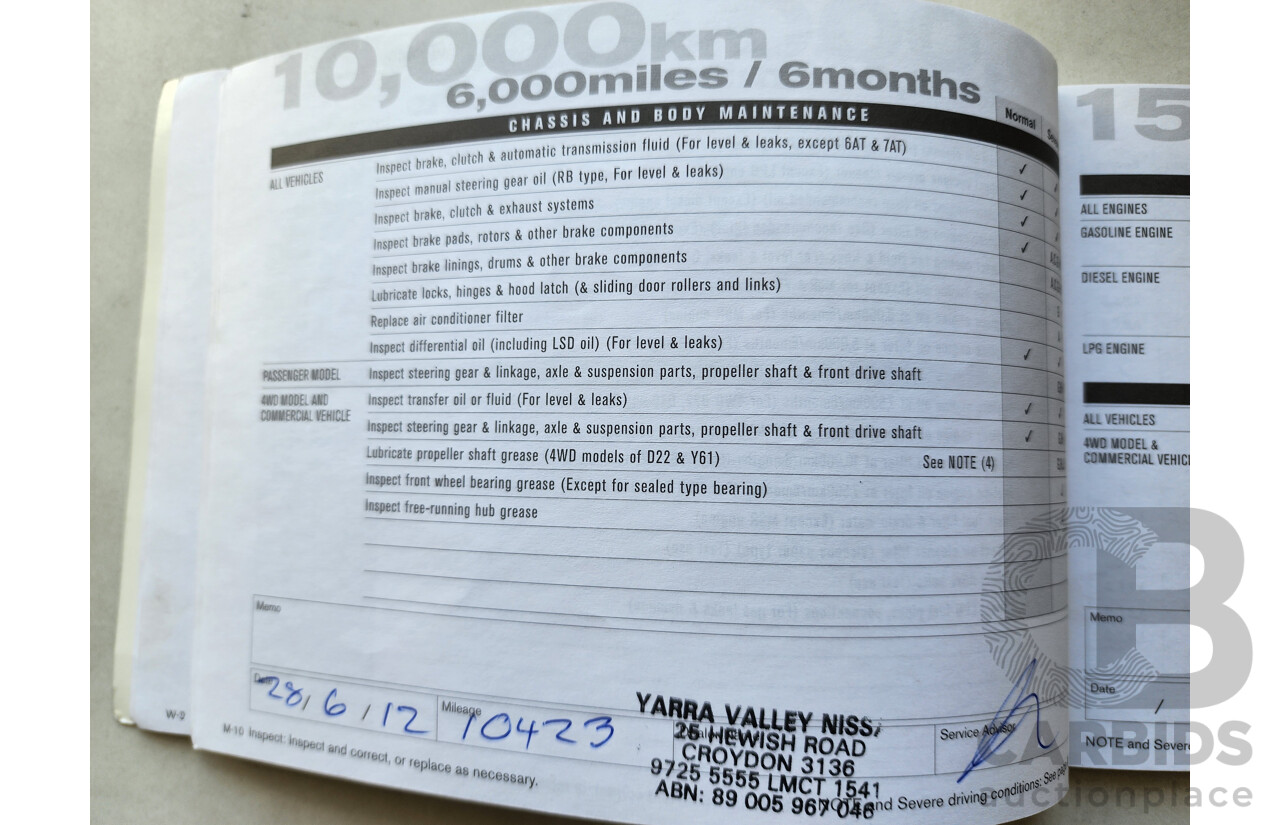 10,000km
6,000miles / 6months
CHASSIS AND BODY MAINTENANCE
Normal
ALL VEHICLES
Inspect brake, clutch & automatic transmission fluid (For level & leaks, except 6AT & 7AT) ✓
Inspect manual steering gear oil (RB type, For level & leaks) ✓
Inspect brake, clutch & exhaust systems ✓
Inspect brake pads, rotors & other brake components ✓
Inspect brake linings, drums & other brake components
Lubricate locks, hinges & hood latch (& sliding door rollers and links)
Replace air conditioner filter
Inspect differential oil (including LSD oil) (For level & leaks) ✓
PASSENGER MODEL
Inspect steering gear & linkage, axle & suspension parts, propeller shaft & front drive shaft
4WD MODEL AND
COMMERCIAL VEHICLE
Inspect transfer oil or fluid (For level & leaks) ✓
Inspect steering gear & linkage, axle & suspension parts, propeller shaft & front drive shaft ✓
Lubricate propeller shaft grease (4WD models of D22 & Y61) See NOTE (4)
Inspect front wheel bearing grease (Except for sealed type bearing)
Inspect free-running hub grease
Memo
Date 28/6/12
Mileage 10423
YARRA VALLEY NISS
25 HEWISH ROAD
CROYDON 3136
9725 5555 LMCT 1541
ABN: 89 005 967 046
Service Advisor
W-9
M-10 Inspect: Inspect and correct, or replace as necessary.
NOTE and Severe driving conditions: See
15
ALL ENGINES
GASOLINE ENGINE
DIESEL ENGINE
LPG ENGINE
ALL VEHICLES
4WD MODEL &
COMMERCIAL VEHICL
Memo
Date
/
NOTE and Severe
CARBIDS
auctionplace